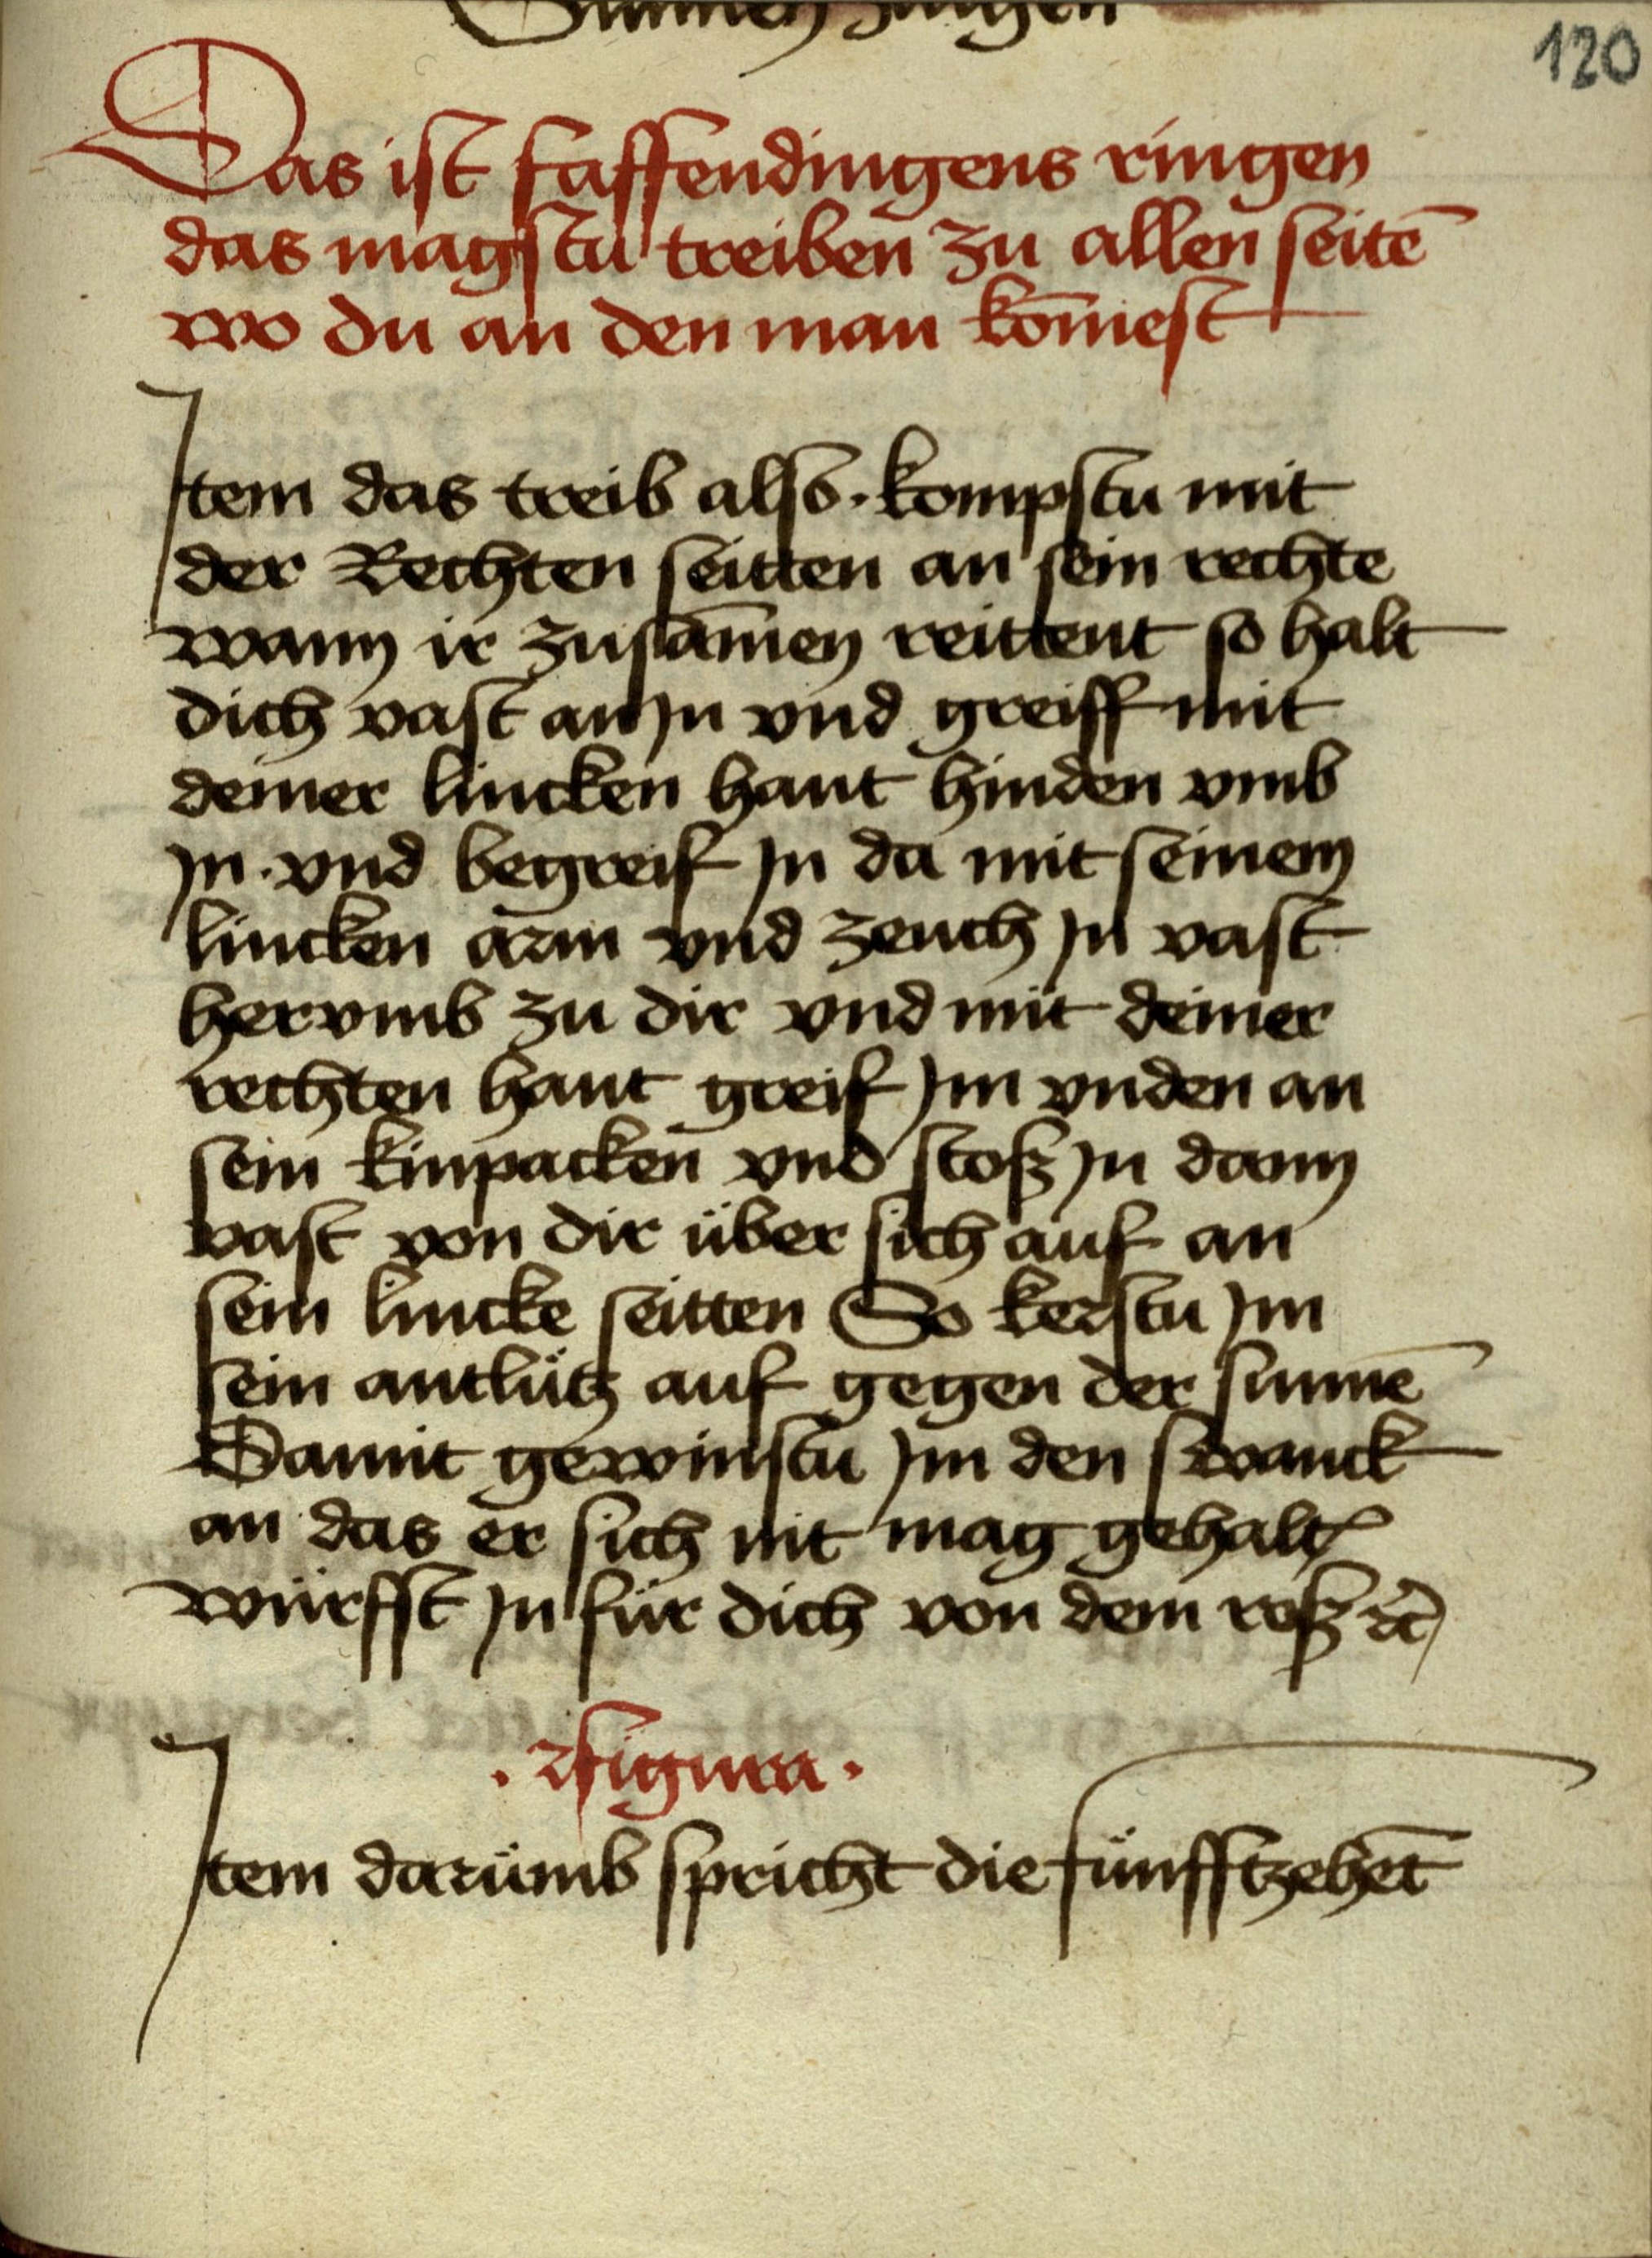 Sunnen zaigen
120
Das ist faſſendingens ringen
das magſtu treiben zu allen ſeitē
wo du an den man kōmeſt
Item das treib alſo · kompſtu mit
der Rechten ſeitten an ſein rechte
wann ir zuſāmen reittent ſo halt
dich vaſt an Jn vnd greiff mit
deiner lincken hant hinden vmb
Jn · vnd begreif Jn da mit ſeinem
lincken arm vnd zeuch Jn vaſt
hervmb zu dir vnd mit deiner
rechten hant greif Jm vnden an
ſein kinpacken vnd ſtoß Jn dann
vaſt von dir über ſich auf an
ſein lincke ſeitten So kerſtu Jm
ſein antlütz auf gegen der ſunnē
Damit gewinſtu Jm den ſwanck
an das er ſich nit mag gehalt̄
würffſt Jn für dich von dem roß ꝛc̄
· Figura ·
Item darümb ſpricht die fünfftzehēt